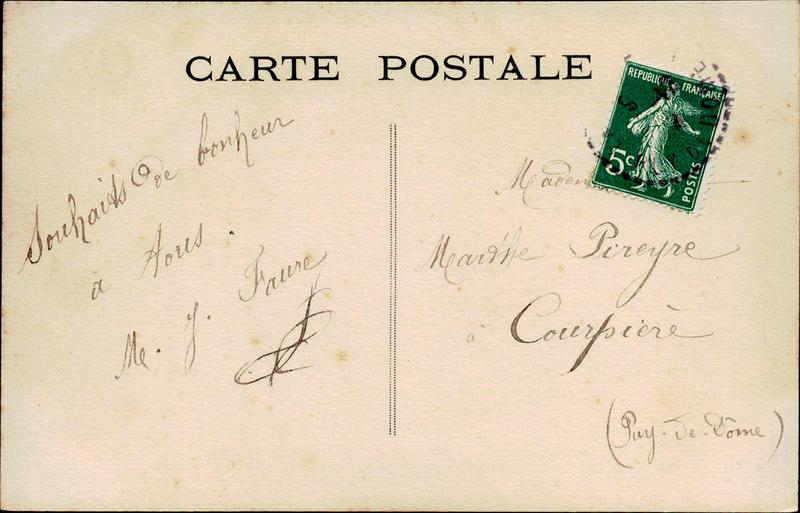 CARTE POSTALE
Souhaits de bonheur
à tous.
M. J. Faure
REPUBLIQUE FRANÇAISE
5c
POSTES
Marthe Pireyre
à Courpière
(Puy-de-Dôme)